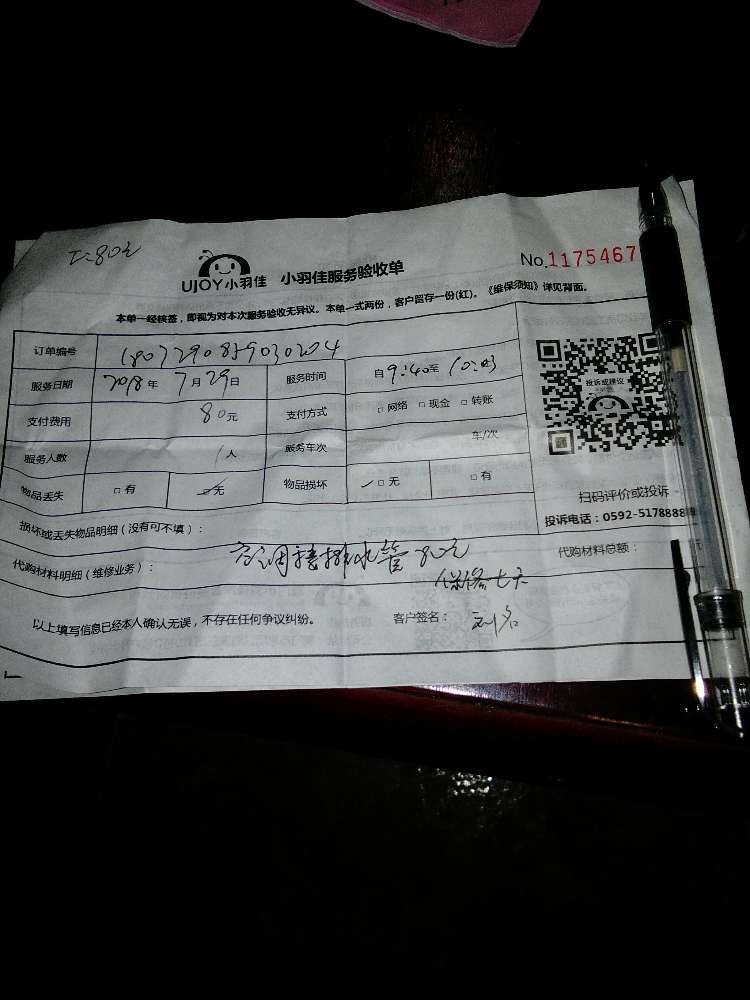 工:80元
UJOY小羽佳 小羽佳服务验收单 No.1175467
本单一经核签，即视为对本次服务验收无异议。本单一式两份，客户留存一份(红)。《维保须知》详见背面。
订单编号 1807290859030204
服务日期 2018年 7月29日 服务时间 自9:40至10:03
支付费用 80元 支付方式 □网络 □现金 □转账
服务人数 1人 服务车次 车/次
物品丢失 □有 ☑无 物品损坏 ✓□无 □有
投诉或建议
扫码评价或投诉
投诉电话：0592-5178888
损坏或丢失物品明细（没有可不填）：
代购材料明细（维修业务）： 空调接排水管80元 代购材料总额：
保修七天
以上填写信息已经本人确认无误，不存在任何争议纠纷。 客户签名：